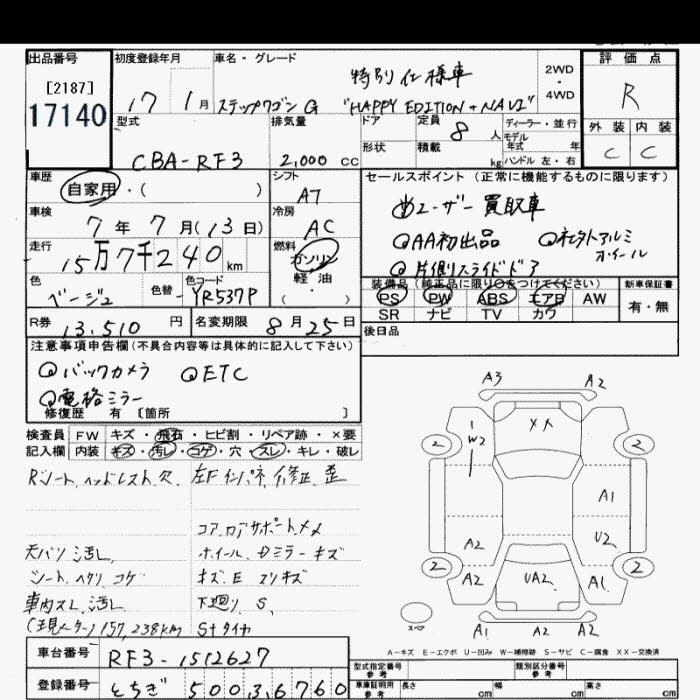 出品番号
[2187]
17140
初度登録年月
17 1月
車名・グレード
特別仕様車
ステップワゴン G "HAPPY EDITION + NAVI"
2WD
・
4WD
評価点
R
外装 内装
C C
型式
CBA-RF3
排気量
2,000 cc
ドア
定員
8 人
形状
積載
kg
ディーラー・並行
モデル
年式 年
ハンドル 左・右
車歴
自家用・( )
シフト
A7
車検
7年 7月(13日)
冷房
AC
走行
15万7千240km
燃料
ガソリン
軽油
( ・ )
色
ベージュ
色替
色コード
YR537P
セールスポイント (正常に機能するものに限ります)
ユーザー買取車
AA初出品
社外アルミ
ホイール
片側スライドドア
装備品 (純正品に限り○をつけてください)
PS PW ABS エアB AW
SR ナビ TV カワ
新車保証書
有・無
R券
13,510 円
名変期限
8月25日
後日品
注意事項申告欄(不具合内容等は具体的に記入して下さい)
バックカメラ ETC
電格ミラー
修復歴 有 〔箇所 〕
検査員 FW キズ・飛石・ヒビ割・リペア跡・×要
記入欄 内装 キズ・汚レ・コゲ・穴・スレ・キレ・破レ
Rシート、ヘッドレスト欠 左Fインパネ、修正、歪
コア、ロアサポート、メメ
天バリ 汚レ ホイール、Dミラー キズ
シート、ヘタリ コゲ キズ、E スリキズ
車内スレ、汚レ 下廻り S
(現メーター) 157,238km Sナタイヤ
A3 A2
XA
1
W2
2 2
A1
A2 U2
2 2
A2 UA2 A1
スペア
A1 A2 A2
A−キズ E−エクボ U−凹み W−補修跡 S−サビ C−腐食 XX−交換済
車台番号
RF3-1512627
登録番号
とちぎ 500 3 6760
型式指定番号
参考
類別区分番号
参考
車庫証明用
参考
長さ cm
幅 cm
高さ cm